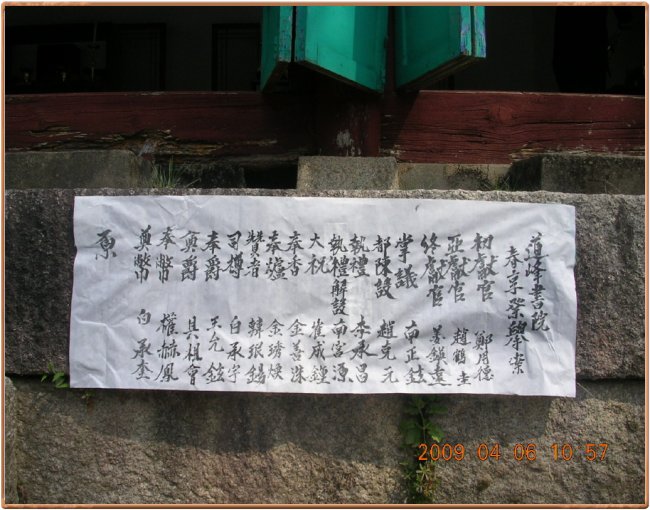 道峰書院
春享祭
初獻官 鄭
亞獻官 趙鶴圭
終獻官 姜
掌議 南正鉉
都陳設 趙克元
執禮 李承昌
執禮解說 南宮源
大祝 崔成鍾
奉香 金善洙
奉爐 金琇煥
贊者 韓銀錫
司樽 白承宇
奉爵 允鉉
奠爵 具祖會
奉幣 權赫鳳
奠幣 白承奎
原
2009 04 06 10:57